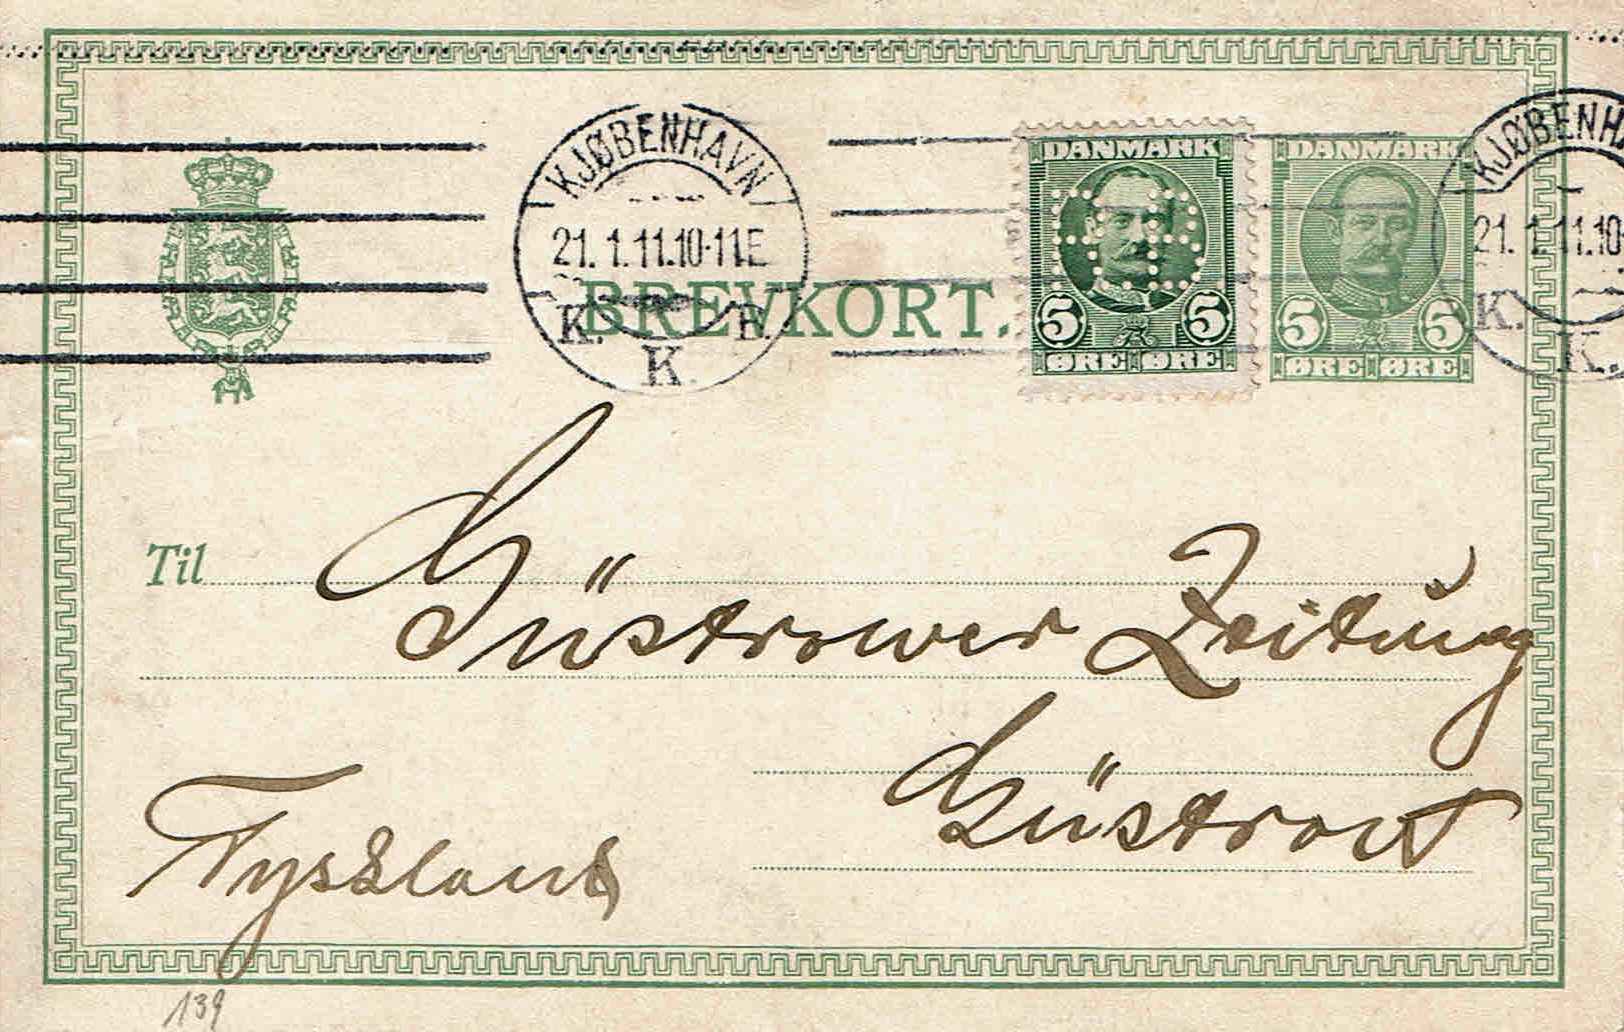 KJØBENHAVN
21. 1. 11. 10-11 E
K. B.
K.
BREVKORT.
DANMARK
5 5
ØRE ØRE
DANMARK
5 5
ØRE ØRE
KJØBENHA
21. 1. 11. 10-
K.
K.
Til Güstrower Zeitung
Güstrow
Tyskland
139